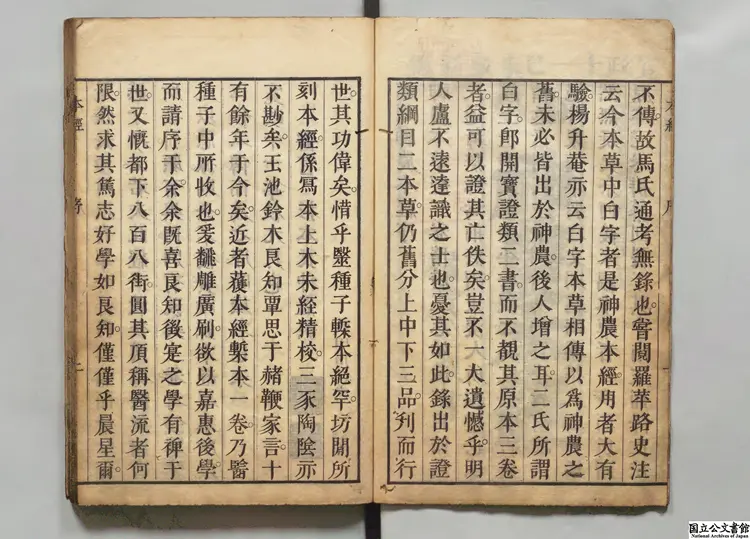 不傳故馬氏通考無錄也。嘗閱羅苹路史注
云今本草中白字者是神農本經。用者大有
驗。楊升菴亦云白字本草相傳以爲神農之
舊。未必皆出於神農。後人增之耳。二氏所謂
白字。卽開寶證類二書。而不覩其原本三卷
者。益可以證其亡佚矣。豈不一大遺憾乎。明
人盧不遠達識之士也。憂其如此。錄出於證
類綱目二本草。仍舊分上中下三品。刋而行
世。其功偉矣。惜乎毉種子槧本絕罕。坊間所
刻本經係寫本上木未經精校。三豕陶陰亦
不尠矣。玉池鈴木良知覃思于赭鞭家言。十
有餘年于今矣。近者獲本經槧本一卷。乃醫
種子中所收也。爰飜雕廣刷。欲以嘉惠後學。
而請序于余。余既喜良知後寔之學有裨于
世。又慨都下八百八街。圓其頂稱醫流者何
限。然求其篤志好學如良知。僅僅乎晨星爾。
本經
序
国立公文書館
National Archives of Japan